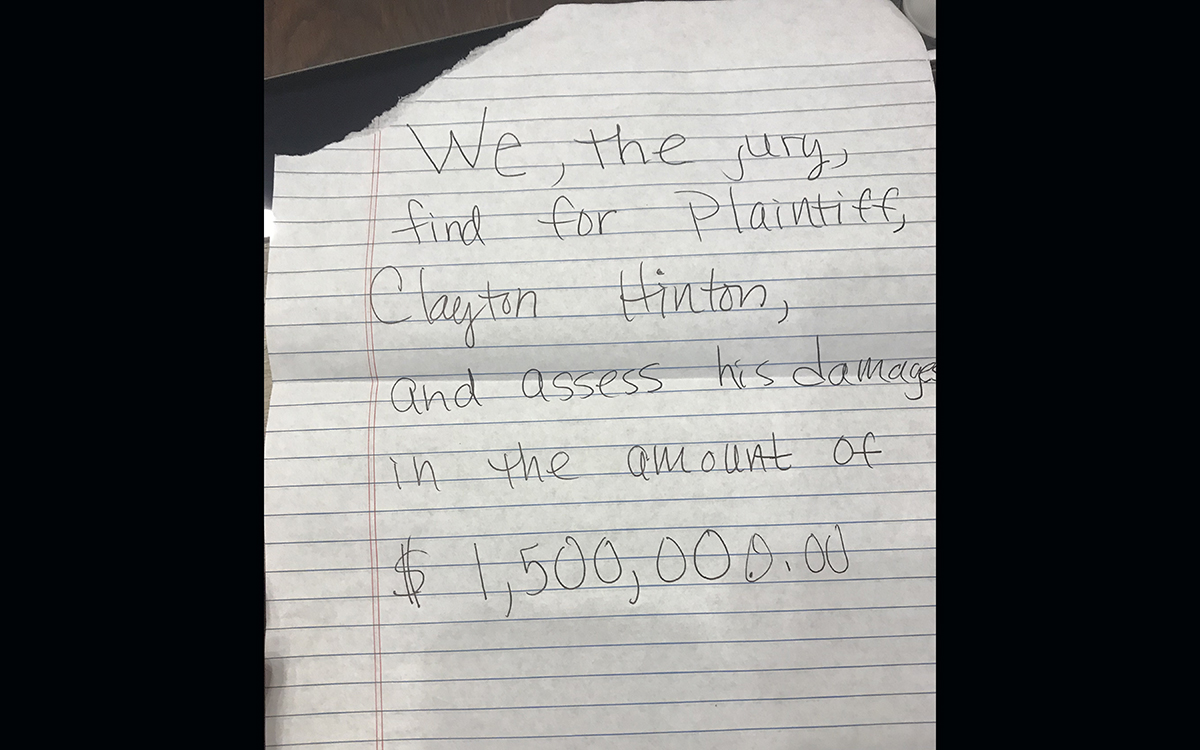 We, the jury,
find for Plaintiff,
Clayton Hinton,
and assess his damages
in the amount of
$ 1,500,000.00